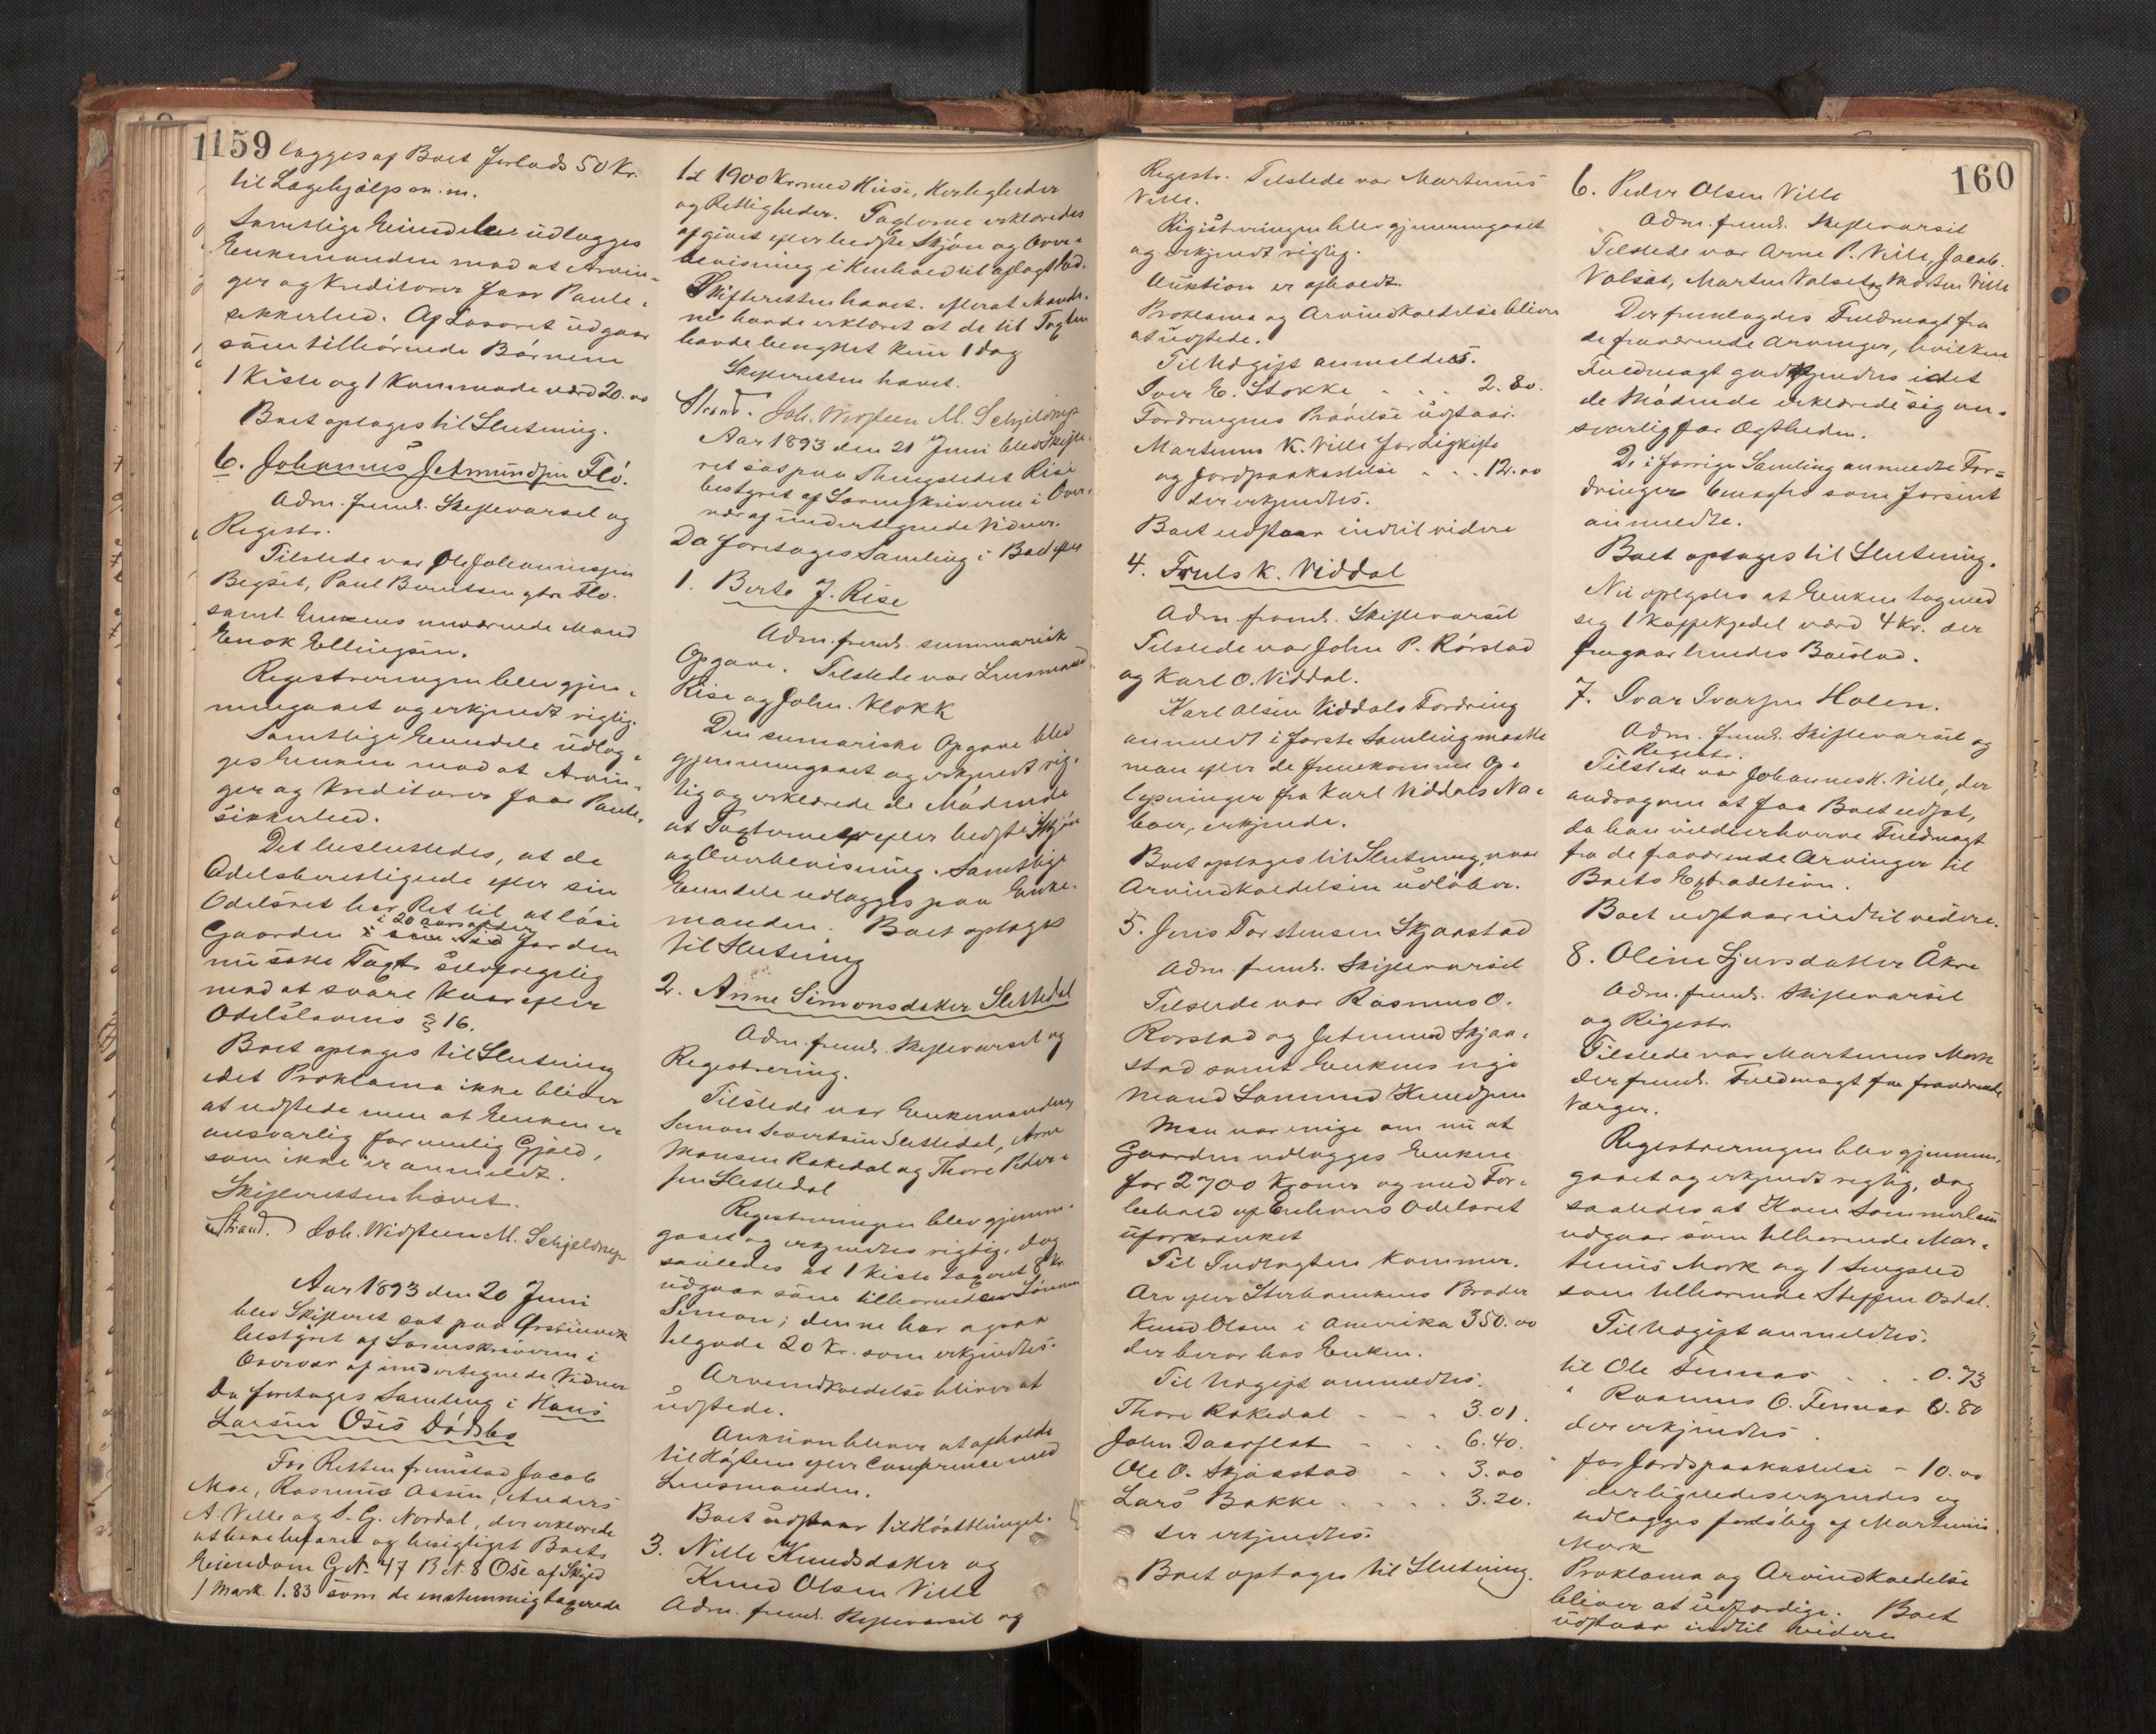 159
lægges af Boet forlods 50 Kr.
til Lægehjælp m.m.
Samtlige Eiendele udlægges
Enkemanden mod at Arvin-
ger og Kreditorer faar Pante-
sikkerhed. Af Løsøret udgaar
som tilhørende Børnene
1 Kiste og 1 Kommode værd 20.00
Boet optages til Slutning.
6. Johannes Jetmundsen Flø.
Adm. freml. Skiftevarsel og
Registr.
Tilstede var Ole Johannessen
Begset, Paul Berntsen ytre Flø.
samt Enkens nuværende Mand
Enok Ellingsen.
Registreringen blev gjen-
nemgaaet og erkjendt rigtig.
Samtlige Eiendele udlæg-
ges Enken mod at Arvin-
ger og Kreditorer faar Pante-
sikkerhed.
Det besluttedes, at de
Odelsberettigede efter sin
Odelsret har Ret til at løse
Gaarden i 20 aarsalder for den
nu satte Taxt selvfølgelig
mod at svare Kaar efter
Odelslovens § 16.
Boet optages til Slutning
idet Proklama ikke bliver
at udstede men at Enken er
ansvarlig for mulig Gjæld,
som ikke er anmeldt.
Skifteretten hævet.
Strand. Joh. Widsteen M. Schjeldrup
Aar 1893 den 20 Juni
blev Skifteret sat paa Ørstenvik
bestyret af Sorenskriveren i
Overvær af undertegnede Vidner
Da foretages Samling i Hans
Larsen Oses Dødsbo
For Retten fremstod Jacob
Moe, Rasmus Aasen, Anders
A. Velle og S. G. Nordal, der erklærede
at have befaret og besigtiget Boets
Eiendom G. N. 47 B. N. 8 Ose af Skyld
1 Mark 1.83 som de enstemmig taxerede
til 1900 Kr. med Huse, Herligheder
og Rettigheder. Taxterne erklæredes
afgivet efter bedste Skjøn og Over-
bevisning i Henhold til aflagt Ed.
Skifteretten hævet. efterat Mænde-
ne havde erklæret at de til Taxten
havde benyttet kun 1 Dag
Skifteretten hævet.
Strand. Joh. Widsteen M. Schjeldrup
Aar 1893 den 21 Juni blev Skifte-
ret sat paa Thingstedet Rise
bestyret af Sorenskriveren i Over-
vær af undertegnede Vidner.
Da foretages Samling i Boet efter
1. Berte J. Rise
Adm. freml. summarisk
Opgave. Tilstede var Lensmand
Rise og John Klokk
Den sumariske Opgave blev
gjennemgaaet og erkjendt rig-
tig og erklærede de Mødende
at Taxterne er efter bedste Skjøn
og Overbevisning. Samtlige
Eiendele udlægges paa Enke-
manden. Boet optages
til Slutning
2. Anne Simonsdatter Slettedal
Adm. freml. Skiftevarsel og
Registrering.
Tilstede var Enkemanden
Simon Sivertsen Slettedal, Arne
Monsen Rakedal og Thore Peder-
sen Slettedal
Registreringen blev gjennem-
gaaet og erkjendtes rigtig, dog
saaledes at 1 Kiste taxeret 8 Kr.
udgaar som tilhørende Sønnen
Simon; denne har ogsaa
tilgode 20 Kr. som erkjendtes.
Arveindkaldelse bliver at
udstede.
Auktion bliver at afholde
til Høsten efter Conference med
Lensmanden.
Boet udstaar til Høstthinget.
3. Nille Knudsdatter og
Knud Olsen Ville
Adm. freml. Skiftevarsel og
160
Registr. Tilstede var Martinus
Ville.
Registreringen blev gjennemgaaet
og erkjendt rigtig.
Auktion er afholdt.
Proklama og Arveindkaldelse bliver
at udstede.
Til Udgift anmeldtes.
Iver E. Stokke . . . 2.80.
Fordringens Bevislse udstaar.
Martinus K. Ville for Ligkiste
og Jordpaakastelse . . . 12.00
der erkjendtes.
Boet udstaar indtil videre
4. Truls K. Viddal
Adm freml. Skiftevarsel
Tilstede var John P. Rørstad
og Karl O. Viddal.
Karl Olsen Viddals Fordring
anmeldt i første Samling maatte
man efter de fremkomne Op-
lysninger fra Karl Viddals Na-
boer, erkjende.
Boet optages til Slutning, naar
Arveindkaldelsen udløber.
5. Jens Torstensen Skjaastad
Adm. freml. Skiftevarsel
Tilstede var Rasmus O.
Rørstad og Jetmund Skjaa-
stad samt Enkens nye
Mand Samund Knudsen
Man var enige om nu at
Gaarden udlægges Enken
for 2700 Kroner og med For-
behold af Enhvers Odelsret
uforkrænket
Til Indtægten kommer.
Arv efter Sterbemandens Broder
Knud Olsen i Amerika 350.00
der beror hos Enken.
Til Udgift anmeldtes.
Thore Rakedal - - - 3.01.
John Daarflot - - - 6.40.
Ole O. Skjaastad - - 3.00
Lars Bakke . . . . 3.20.
der erkjendtes.
Boet optages til Slutning.
6. Peder Olsen Ville
Adm. freml. Skiftevarsel
Tilstede var Arne P. Ville, Jacob
Valsæt, Morten Valset og Morten Ville
Der fremlagdes Fuldmagt fra
de fraværende Arvinger, hvilken
Fuldmagt godkjendes idet
de Mødende erklærede sig an-
svarlig for Ægtheden.
De i forrige Samling anmeldte For-
dringer benægtes som forsent
anmeldte.
Boet optages til Slutning.
Nu oplystes at Enken tog med
sig 1 Kaffekjedel værd 4 Kr. der
fragaar hendes Boeslod.
7. Ivar Ivarsen Holen.
Adm. freml. Skiftevarsel og
Registr.
Tilstede var Johannes K. Ville, der
androg om at faa Boet udsat,
da han vilde erhverve Fuldmagt
fra de fraværende Arvinger til
Boets Extradetion.
Boet udstaar indtil videre.
8. Oline Sjursdatter Åkre
Adm. freml. Skiftevarsel
og Registr.
Tilstede var Martinus Mork
der freml. Fuldmagt fra fraværende
Værger.
Registreringen blev gjennem-
gaaet og erkjendt rigtig, dog
saaledes at
udgaar som tilhørende Mar-
tinus Mork og 1 Sengsted
som tilhørende Steffen Osdal.
Til Udgift anmeldtes.
til Ole Finnes . . . 0.73
" Rasmus O. Finnes 6.80
der erkjendtes.
" for Jordpaakastelse - 10.00
der ligeledes erkjendes og
udlægges forskudsvis af Martinus
Mork
Proklama og Arveindkaldelse
bliver at udfærdige. Boet
udstaar indtil videre